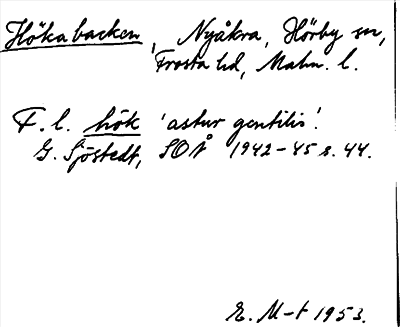 Hökabacken, Nyåkra, Hörby sn,
Frosta hd, Malm. l.
F. l. hök 'astur gentilis'.
G. Sjöstedt, SOÅ 1942-45 s. 44.
E. M-t 1953.